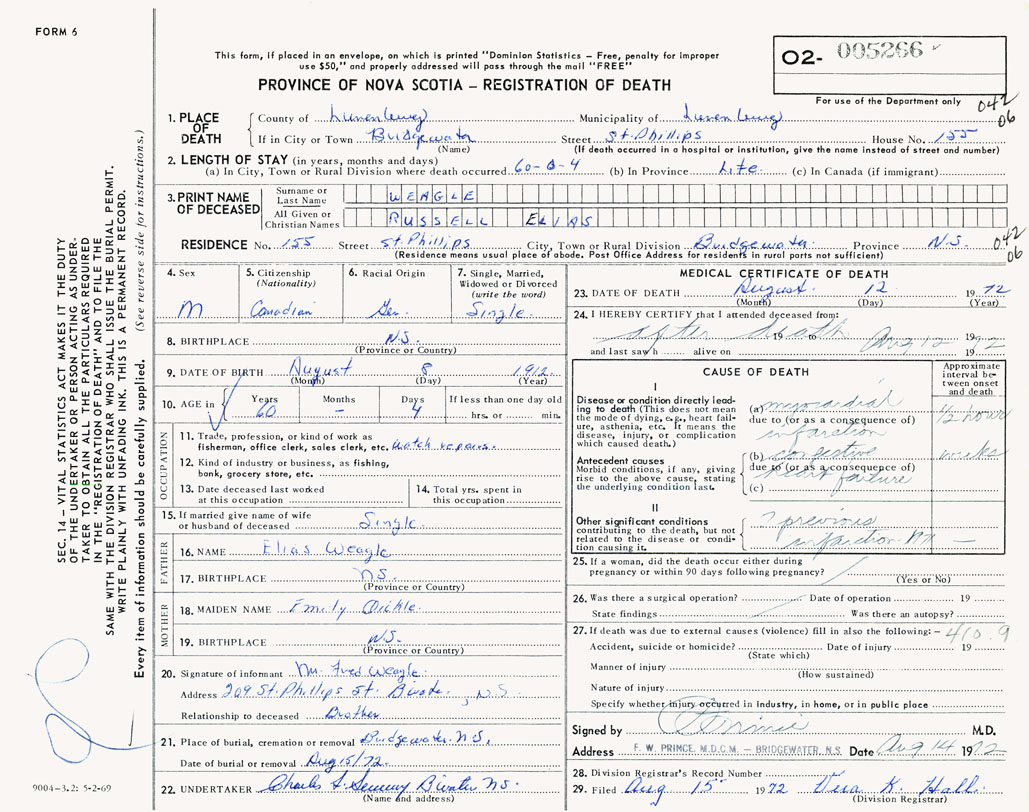 FORM 6
This form, if placed in an envelope, on which is printed "Dominion Statistics – Free, penalty for improper
use $50," and properly addressed will pass through the mail "FREE"
O2- 005266
PROVINCE OF NOVA SCOTIA – REGISTRATION OF DEATH
For use of the Department only 042
06
1. PLACE OF DEATH
County of Lunenburg Municipality of Lunenburg
If in City or Town Bridgewater Street St. Phillips House No. 155
(Name) (If death occurred in a hospital or institution, give the name instead of street and number)
2. LENGTH OF STAY (in years, months and days)
(a) In City, Town or Rural Division where death occurred 60-0-4 (b) In Province Life (c) In Canada (if immigrant)
3. PRINT NAME OF DECEASED
Surname or Last Name WEAGLE
All Given or Christian Names RUSSELL ELIAS
RESIDENCE No. 155 Street St. Phillips City, Town or Rural Division Bridgewater Province N.S. 042
06
(Residence means usual place of abode. Post Office Address for residents in rural parts not sufficient)
4. Sex
M
5. Citizenship
(Nationality)
Canadian
6. Racial Origin
Ger.
7. Single, Married,
Widowed or Divorced
(write the word)
Single
8. BIRTHPLACE N.S.
(Province or Country)
9. DATE OF BIRTH August 8 1912
(Month) (Day) (Year)
10. AGE in
Years Months Days If less than one day old
60 – 4 hrs. or min.
OCCUPATION
11. Trade, profession, or kind of work as
fisherman, office clerk, sales clerk, etc. watch repairs.
12. Kind of industry or business, as fishing,
bank, grocery store, etc.
13. Date deceased last worked
at this occupation
14. Total yrs. spent in
this occupation
15. If married give name of wife
or husband of deceased Single
FATHER
16. NAME Elias Weagle
17. BIRTHPLACE N.S.
(Province or Country)
MOTHER
18. MAIDEN NAME Emily
19. BIRTHPLACE N.S.
(Province or Country)
20. Signature of informant Mr. Fred Weagle
Address 209 St. Phillips St. B'water, N.S.
Relationship to deceased Brother
21. Place of burial, cremation or removal Bridgewater N.S.
Date of burial or removal Aug 15/72
22. UNDERTAKER Charles B'water N.S.
(Name and address)
MEDICAL CERTIFICATE OF DEATH
23. DATE OF DEATH August 12 1972
(Month) (Day) (Year)
24. I HEREBY CERTIFY that I attended deceased from:
after death 19 to Aug 12 1972
and last saw h alive on 19
CAUSE OF DEATH
Approximate interval between onset and death
I
Disease or condition directly leading to death (This does not mean the mode of dying, e.g., heart failure, asthenia, etc. It means the disease, injury, or complication which caused death.)
(a) myocardial 1/2 hour
due to (or as a consequence of)
infarction
Antecedent causes
Morbid conditions, if any, giving rise to the above cause, stating the underlying condition last.
(b) congestive weeks
due to (or as a consequence of)
heart failure
(c)
II
Other significant conditions contributing to the death, but not related to the disease or condition causing it.
? previous
infarction
25. If a woman, did the death occur either during
pregnancy or within 90 days following pregnancy?
(Yes or No)
26. Was there a surgical operation? Date of operation 19
State findings Was there an autopsy?
27. If death was due to external causes (violence) fill in also the following: – 410.9
Accident, suicide or homicide? Date of injury 19
(State which)
Manner of injury
(How sustained)
Nature of injury
Specify whether injury occurred in industry, in home, or in public place
Signed by Prince M.D.
Address F. W. PRINCE, M.D.C.M. – BRIDGEWATER, N.S. Date Aug 14 1972
28. Division Registrar's Record Number
29. Filed Aug 15 1972 Vera K. Hall
(Division Registrar)
SEC. 14 – VITAL STATISTICS ACT MAKES IT THE DUTY
OF THE UNDERTAKER OR PERSON ACTING AS UNDER-
TAKER TO OBTAIN ALL THE PARTICULARS REQUIRED
IN THE "REGISTRATION OF DEATH" AND TO FILE THE
SAME WITH THE DIVISION REGISTRAR WHO SHALL ISSUE THE BURIAL PERMIT.
WRITE PLAINLY WITH UNFADING INK. THIS IS A PERMANENT RECORD.
Every item of information should be carefully supplied. (See reverse side for instructions.)
9004-3.2: 5-2-69